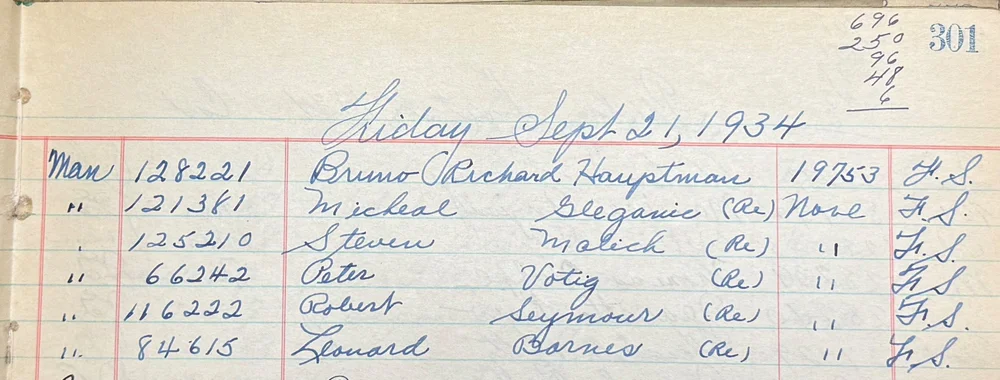 696
250 301
96
48
6
Friday Sept 21, 1934
Man 128221 Bruno Richard Hauptman 19753 F.S.
" 121381 Micheal Gleganic (Re) None F.S.
" 125210 Steven Malich (Re) " F.S.
" 66242 Peter Votig (Re) " F.S
" 116222 Robert Seymour (Re) " F.S.
" 84615 Leonard Barnes (Re) " F.S.